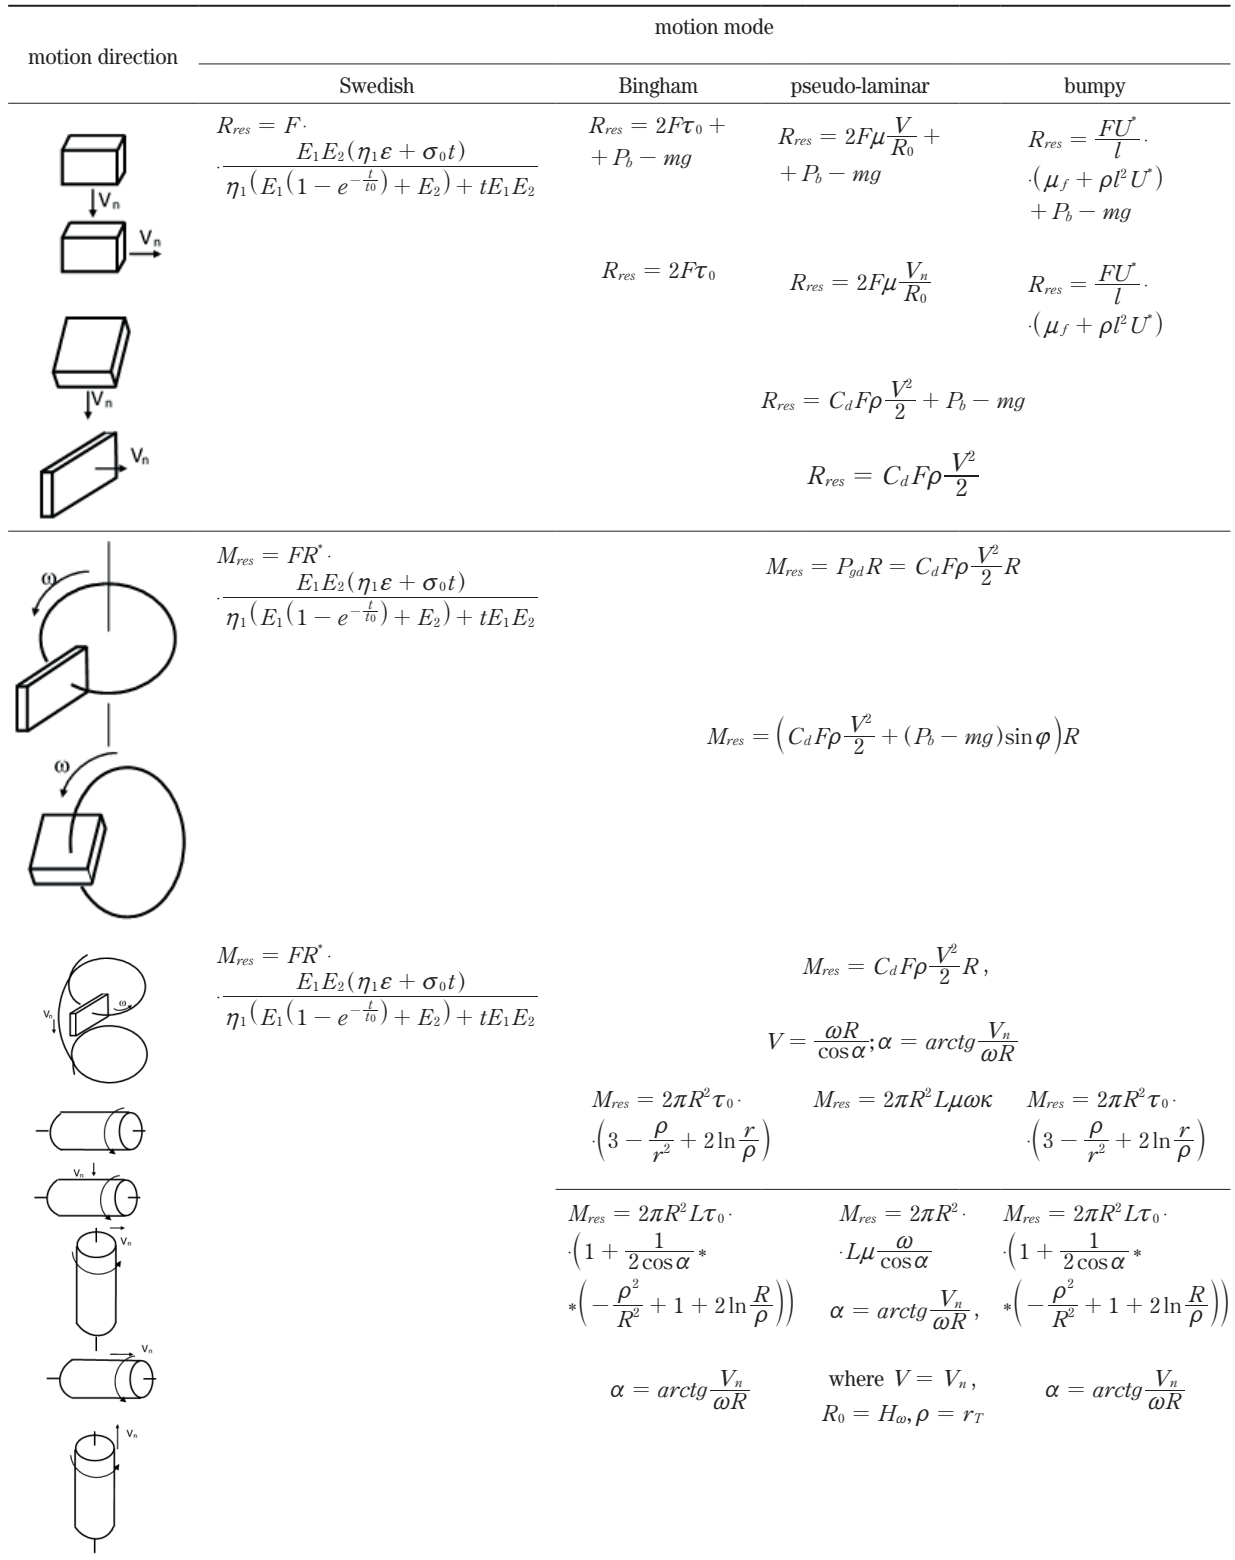 motion direction
motion mode
Swedish Bingham pseudo-laminar bumpy
V_n
V_n
R_{res} = F ·
· \frac{E_1E_2(η_1ε + σ_0t)}{η_1(E_1(1 − e^{−\frac{t}{t0}}) + E_2) + tE_1E_2}
R_{res} = 2Fτ_0 +
+ P_b − mg
R_{res} = 2Fμ\frac{V}{R_0} +
+ P_b − mg
R_{res} = \frac{FU^*}{l} ·
·(μ_f + ρl^2U^*)
+ P_b − mg
R_{res} = 2Fτ_0
R_{res} = 2Fμ\frac{V_n}{R_0}
R_{res} = \frac{FU^*}{l} ·
·(μ_f + ρl^2U^*)
V_n
V_n
R_{res} = C_dFρ\frac{V^2}{2} + P_b − mg
R_{res} = C_dFρ\frac{V^2}{2}
ω
M_{res} = FR^* ·
· \frac{E_1E_2(η_1ε + σ_0t)}{η_1(E_1(1 − e^{−\frac{t}{t0}}) + E_2) + tE_1E_2}
M_{res} = P_{gd}R = C_dFρ\frac{V^2}{2}R
ω
M_{res} = (C_dFρ\frac{V^2}{2} + (P_b − mg)sinφ)R
V_n ω
M_{res} = FR^* ·
· \frac{E_1E_2(η_1ε + σ_0t)}{η_1(E_1(1 − e^{−\frac{t}{t0}}) + E_2) + tE_1E_2}
M_{res} = C_dFρ\frac{V^2}{2}R,
V = \frac{ωR}{cosα}; α = arctg\frac{V_n}{ωR}
M_{res} = 2πR^2τ_0 ·
·(3 − \frac{ρ}{r^2} + 2ln\frac{r}{ρ})
M_{res} = 2πR^2Lμωκ
M_{res} = 2πR^2τ_0 ·
·(3 − \frac{ρ}{r^2} + 2ln\frac{r}{ρ})
V_n
V_n
V_n
V_n
M_{res} = 2πR^2Lτ_0 ·
·(1 + \frac{1}{2cosα} *
*(−\frac{ρ^2}{R^2} + 1 + 2ln\frac{R}{ρ}))
α = arctg\frac{V_n}{ωR}
M_{res} = 2πR^2 ·
· Lμ\frac{ω}{cosα}
α = arctg\frac{V_n}{ωR},
where V = V_n,
R_0 = H_ω, ρ = r_T
M_{res} = 2πR^2Lτ_0 ·
·(1 + \frac{1}{2cosα} *
*(−\frac{ρ^2}{R^2} + 1 + 2ln\frac{R}{ρ}))
α = arctg\frac{V_n}{ωR}